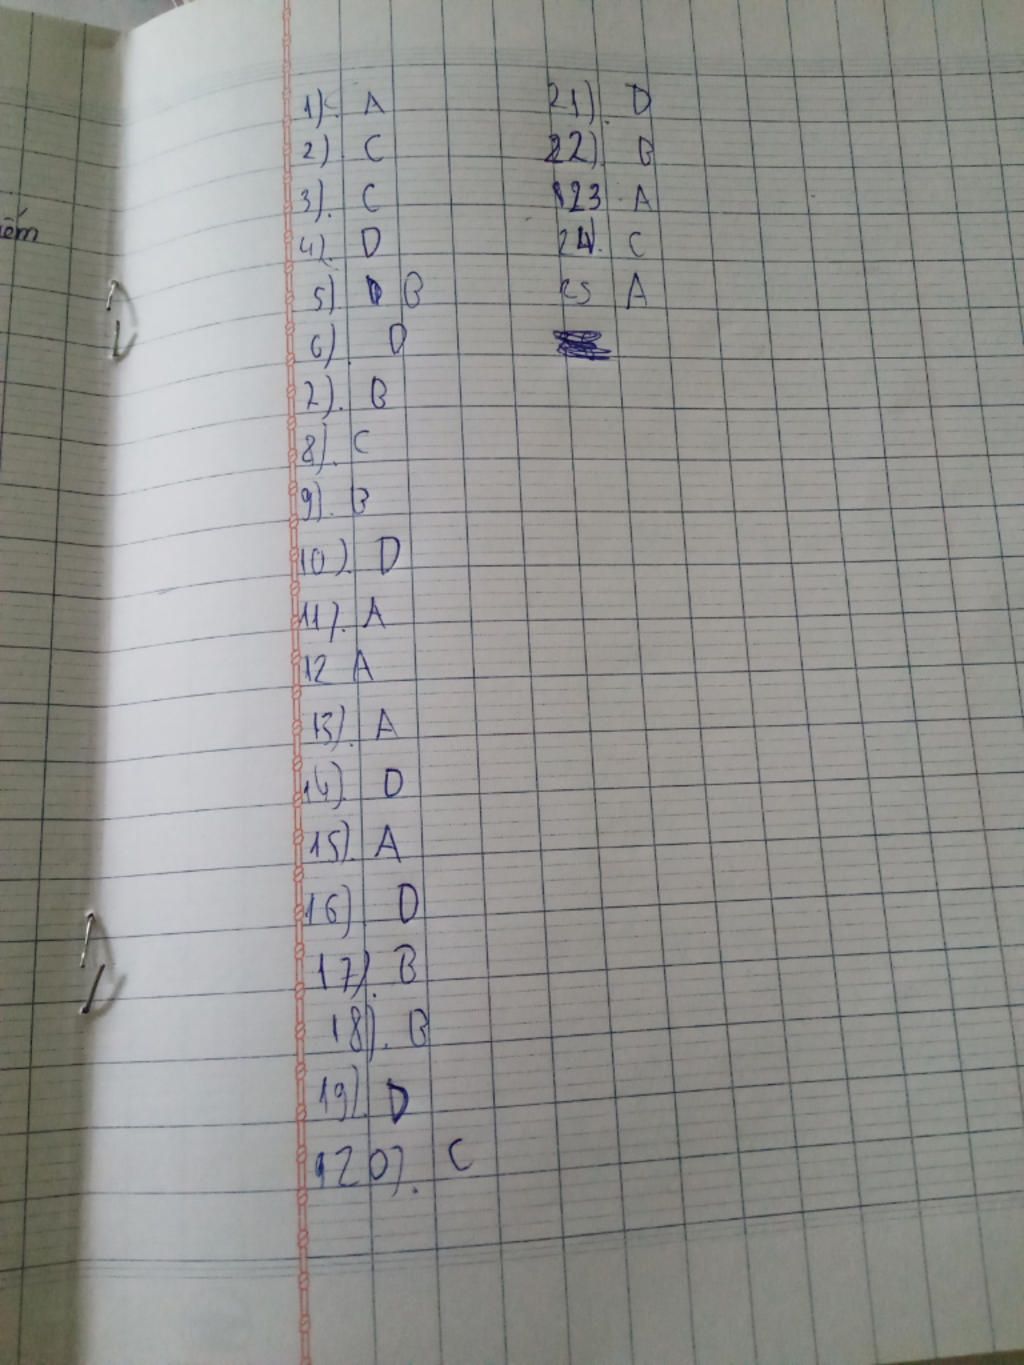 iếm
1) A
2) C
3). C
4). D
5) D B
6) D
7). B
8). C
9). B
10). D
11). A
12 A
13). A
14) D
15). A
16) D
17). B
18). B
19). D
20). C
21). D
22). B
23 . A
24. C
25 A